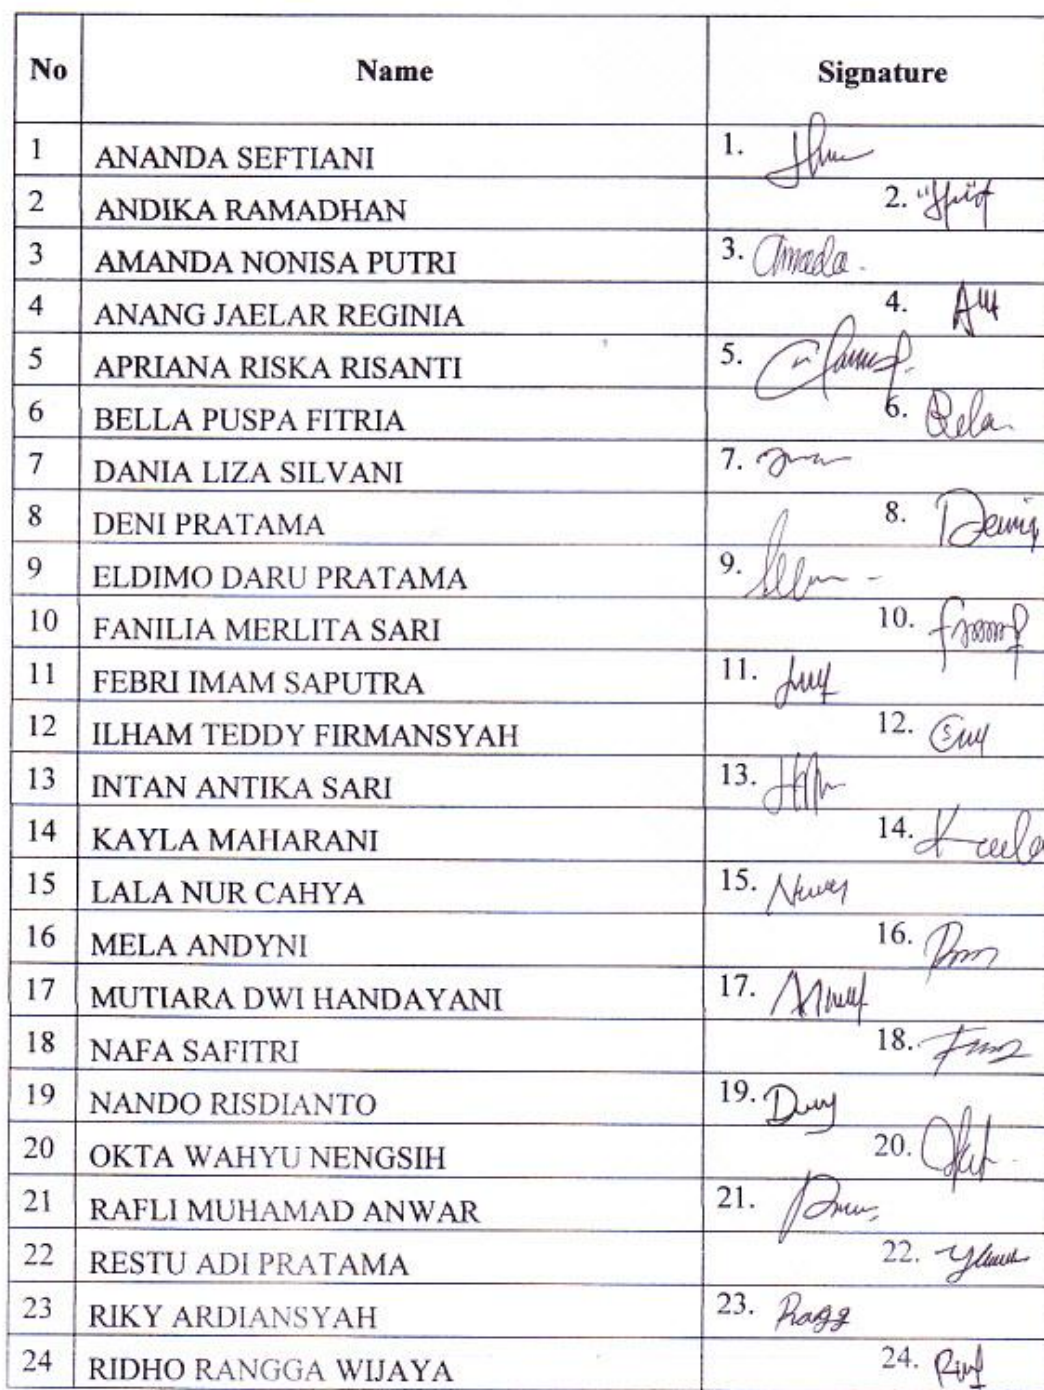 No Name Signature
1 ANANDA SEFTIANI 1.
2 ANDIKA RAMADHAN 2.
3 AMANDA NONISA PUTRI 3. Amada.
4 ANANG JAELAR REGINIA 4.
5 APRIANA RISKA RISANTI 5.
6 BELLA PUSPA FITRIA 6. Bela
7 DANIA LIZA SILVANI 7.
8 DENI PRATAMA 8.
9 ELDIMO DARU PRATAMA 9.
10 FANILIA MERLITA SARI 10.
11 FEBRI IMAM SAPUTRA 11.
12 ILHAM TEDDY FIRMANSYAH 12.
13 INTAN ANTIKA SARI 13.
14 KAYLA MAHARANI 14.
15 LALA NUR CAHYA 15.
16 MELA ANDYNI 16.
17 MUTIARA DWI HANDAYANI 17.
18 NAFA SAFITRI 18.
19 NANDO RISDIANTO 19.
20 OKTA WAHYU NENGSIH 20.
21 RAFLI MUHAMAD ANWAR 21.
22 RESTU ADI PRATAMA 22.
23 RIKY ARDIANSYAH 23. Ragg
24 RIDHO RANGGA WIJAYA 24.